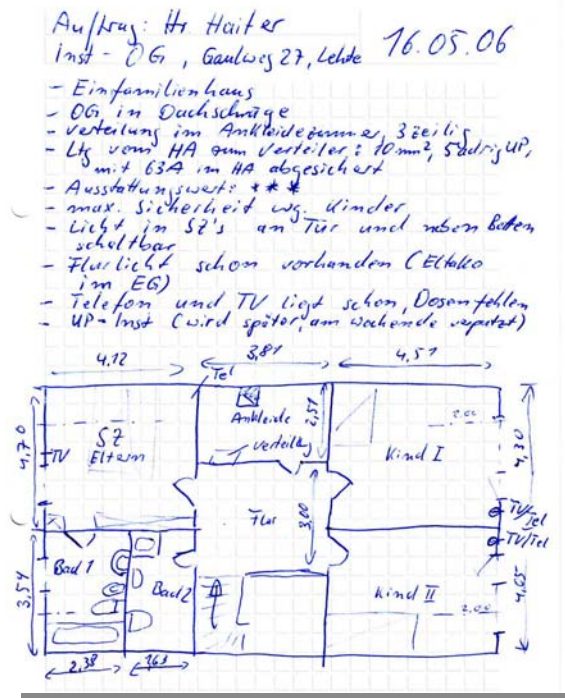 Auftrag: Hr. Haiter
16.05.06
Inst - OG, Gaulweg 27, Lehte
- Einfamilienhaus
- OG in Dachschräge
- Verteilung im Ankleidezimmer, 3 zeilig
- Ltg vom HA zum Verteiler: 10 mm², 5 adrig UP,
mit 63A im HA abgesichert
- Ausstattungswert: ***
- max. Sicherheit wg. Kinder
- Licht in SZ's an Tür und neben Betten
schaltbar
- Flurlicht schon vorhanden (Eltako
im EG)
- Telefon und TV liegt schon, Dosen fehlen
- UP-Inst (wird später, am Wochende verputzt)
4,12
3,81
4,51
Tel
4,70
TV
SZ
Eltern
Ankleide
Verteilg
2,51
Kind I
2.00
4,30
Flur
3,00
TV/Tel
TV/Tel
3,54
Bad 1
Bad 2
Kind II
2.00
4,05
2,38
1,63